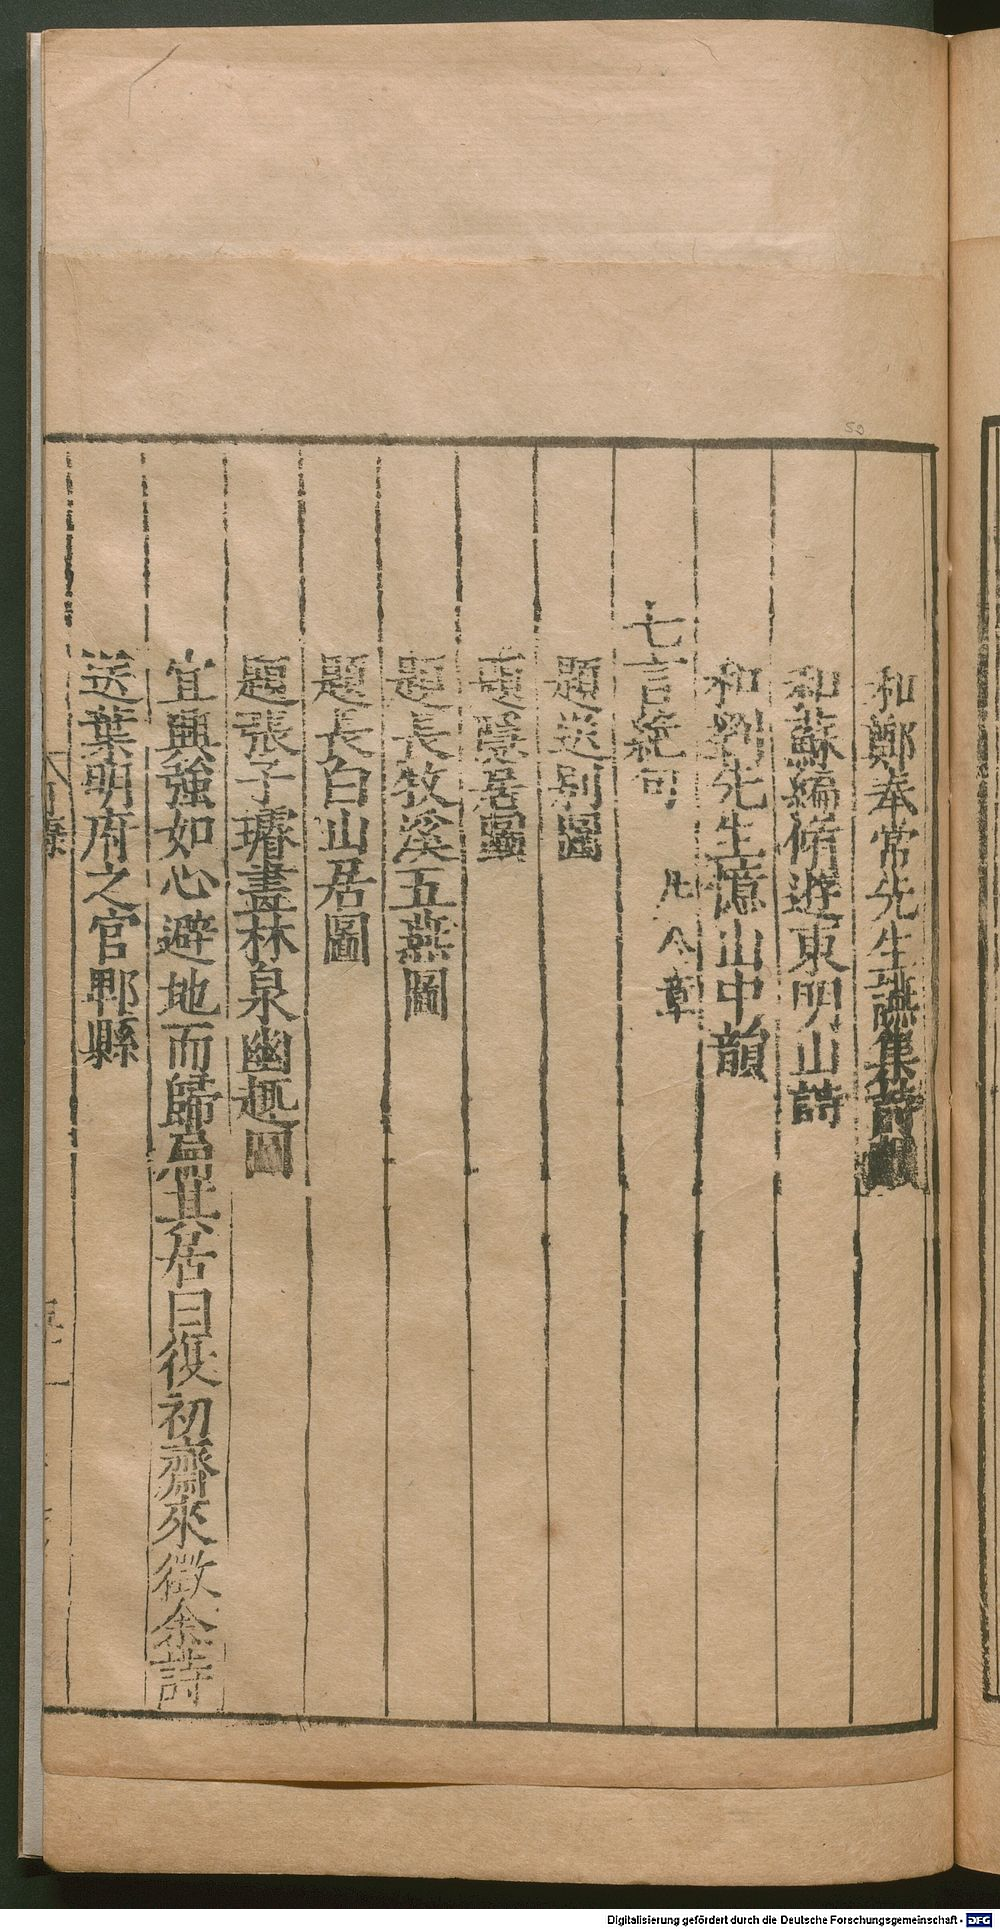 和鄭奉常先生讌集詩韻
和蘇編脩遊東明山詩
和劉先生憶山中韻
七言絶句 凡八章
題送别圖
題隱居圖
題長牧溪五燕圖
題長白山居圖
題張子璿畫林泉幽趣圖
宜興強如心避地而歸扁其居曰復初齋來徵余詩
送葉明府之官鄆縣
59
Digitalisierung gefördert durch die Deutsche Forschungsgemeinschaft - DFG